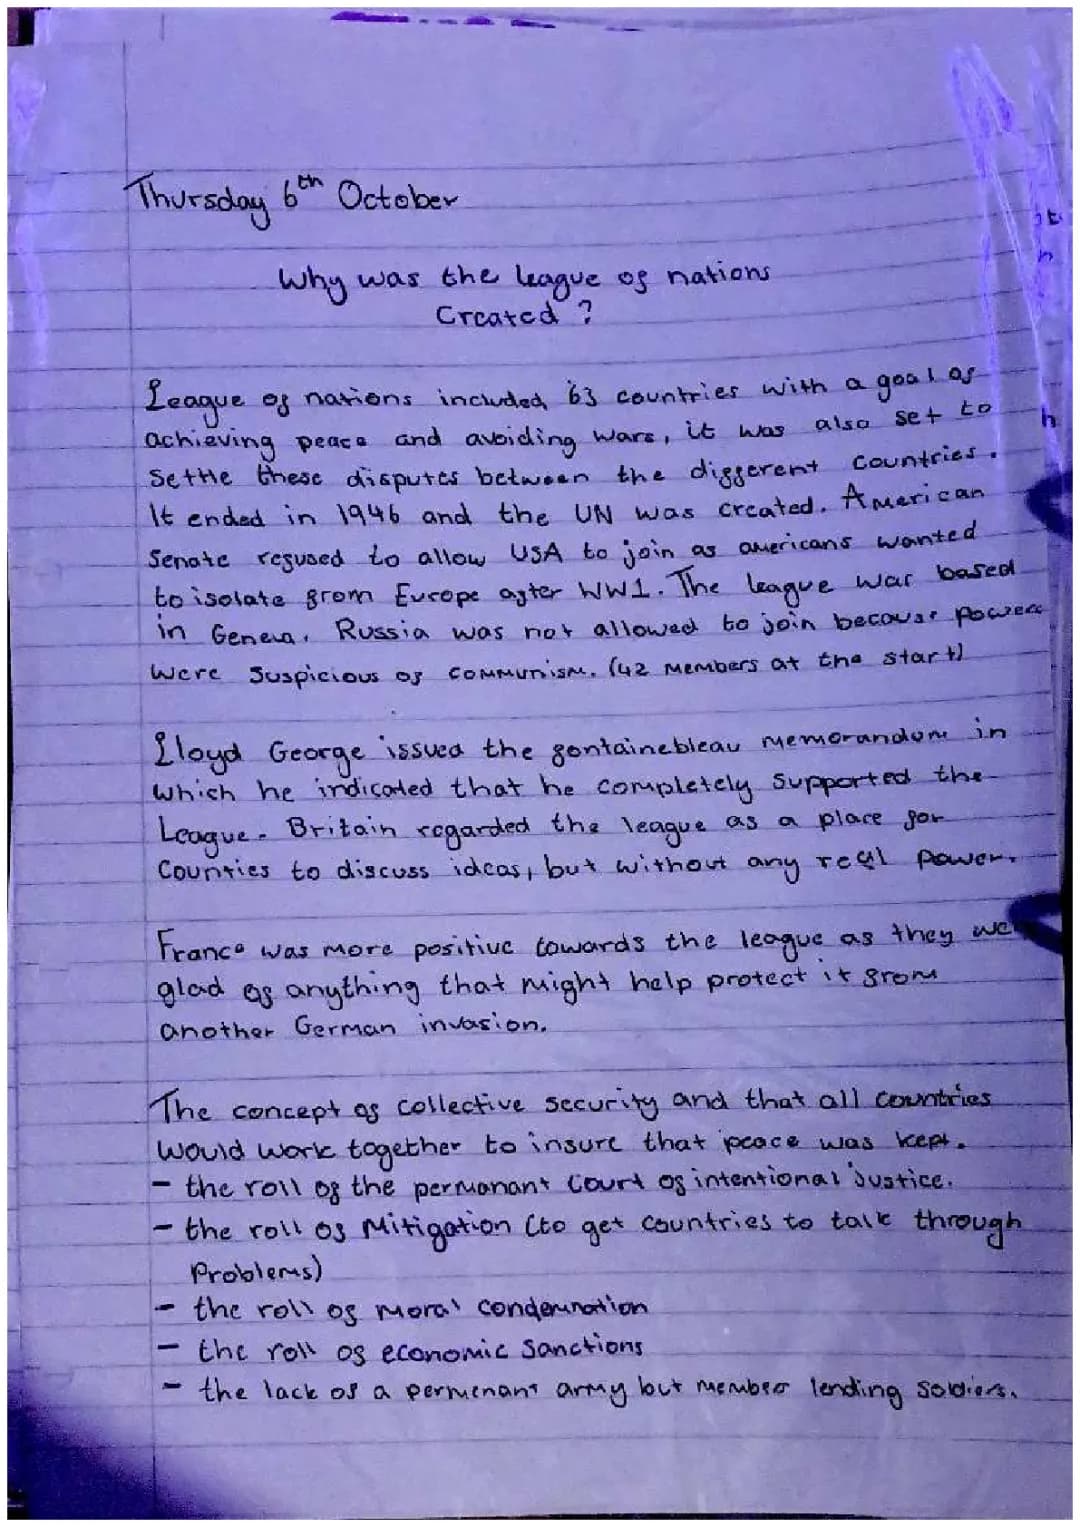 Thursday 6th October
Why was the league of nations
Created ?
League of nations included 63 countries with a goal of
achieving peace and avoiding wars, it was also set to
Settle these disputes between the different countries.
It ended in 1946 and the UN was created. American
Senate refused to allow USA to join as americans wanted
to isolate from Europe after WW1. The league was based
in Geneva. Russia was not allowed to join because powers
were suspicious of communism. (42 members at the start)
Lloyd George issued the fontainebleau memorandom in
which he indicated that he completely supported the
League. Britain regarded the league as a place for
Counties to discuss ideas, but without any real power.
France was more positive towards the league as they
glad of anything that might help protect it from
another German invasion.
The concept of collective security and that all countries
would work together to insure that peace was kept.
- the roll of the permanant Court of intentional Justice.
- the roll of Mitigation (to get countries to talk through
Problems)
- the roll of moral condemnation
- the roll of economic Sanctions
- the lack of a permenant army but member lending soldiers.